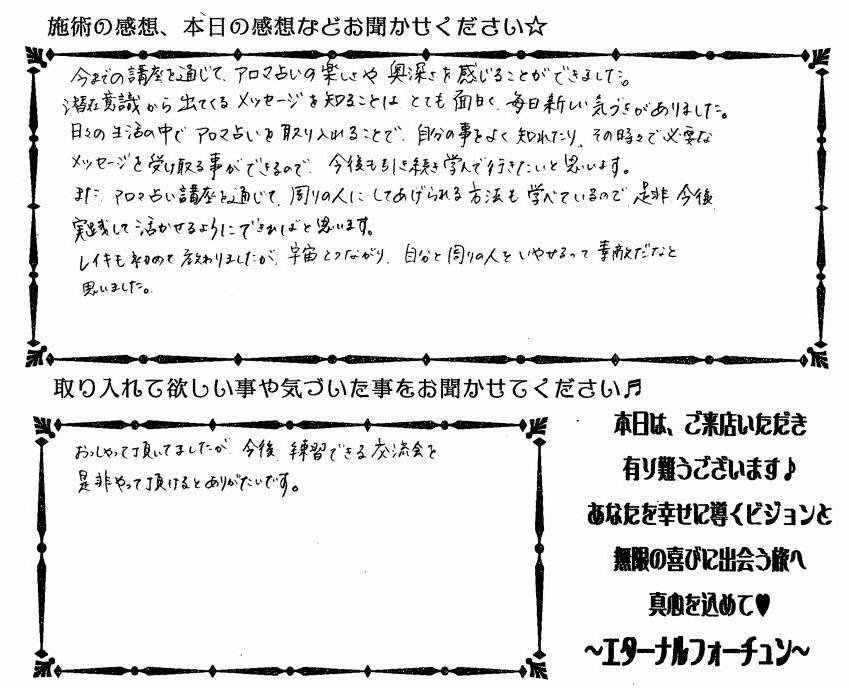 施術の感想、本日の感想などお聞かせください☆
今までの講座を通じて、アロマ占いの楽しさや奥深さを感じることができました。
潜在意識から出てくるメッセージを知ることはとても面白く、毎日新しい気づきがありました。
日々の生活の中でアロマ占いを取り入れることで、自分の事をよく知れたり、その時々で必要な
メッセージを受け取る事ができるので、今後も引き続き学んで行きたいと思います。
また、アロマ占い講座を通じて、周りの人にしてあげられる方法も学べているので、是非今後
実践して活かせるようにできればと思います。
レイキも初めて教わりましたが、宇宙とつながり、自分と周りの人をいやせるって素敵だなと
思いました。
取り入れて欲しい事や気づいた事をお聞かせてください♬
おっしゃって頂いてましたが、今後、練習できる交流会を
是非やって頂けるとありがたいです。
本日は、ご来店いただき
有り難うございます♪
あなたを幸せに導くビジョンと
無限の喜びに出会う旅へ
真心を込めて♥
～エターナルフォーチュン～